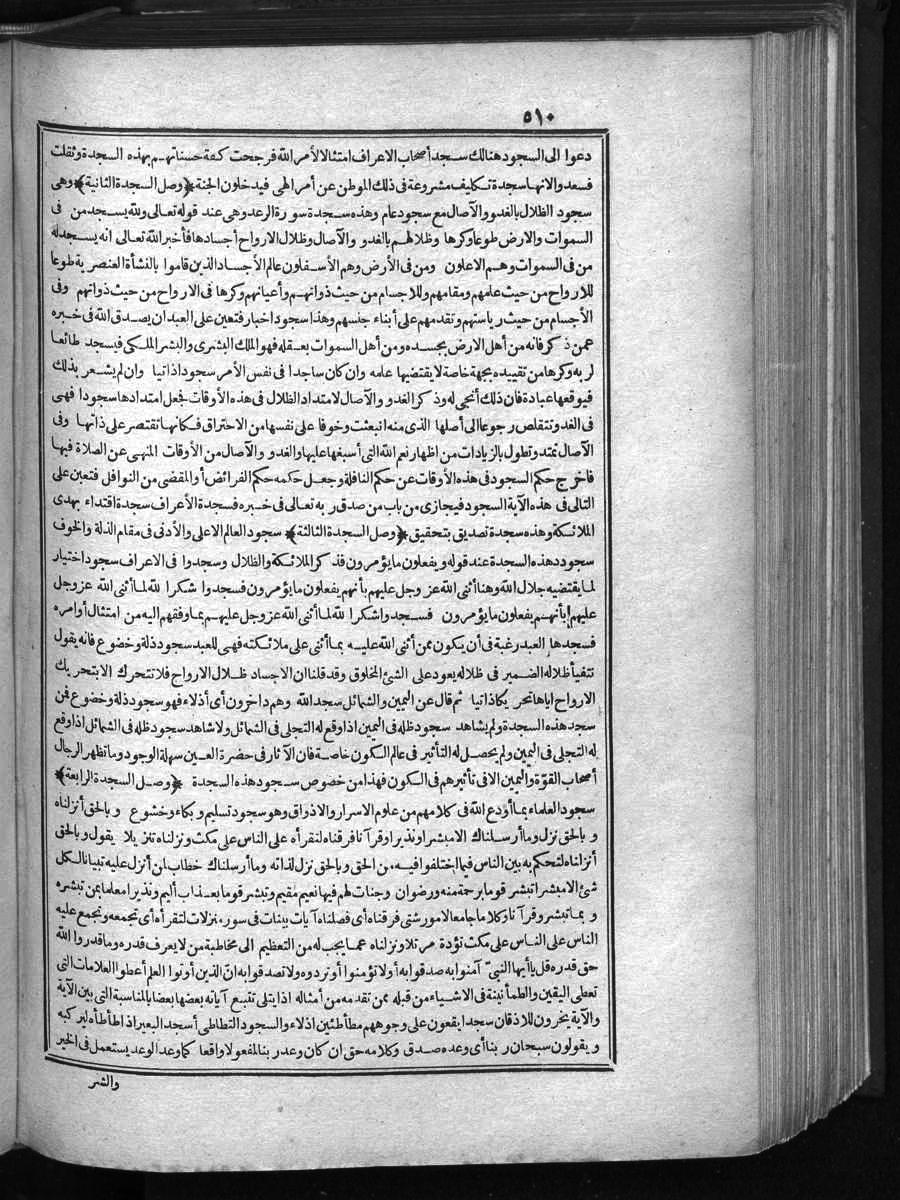 ٥١٠
دعوا الى السجود هنالك سجد أصحاب الاعراف امتثالا لأمر الله فرجحت كفة حسناتهم بهذه السجدة وثقلت
فسعدوا لانها سجدة تكليف مشروعة فى ذلك الموطن عن أمر الهى فيدخلون الجنة ﴿وصل السجدة الثانية﴾ وهى
سجود الظلال بالغدو والآصال مع سجود عام وهذه سجدة سورة الرعد وهى عند قوله تعالى ولله يسجد من فى
السموات والارض طوعا وكرها وظلالهم بالغدو والآصال وظلال الارواح أجسادها فأخبر الله تعالى انه يسجد له
من فى السموات وهم الاعلون ومن فى الأرض وهم الأسفلون عالم الأجساد الذين قاموا بالنشأة العنصرية طوعا
للارواح من حيث علمهم ومقامهم وللاجسام من حيث ذواتهم وأعيانهم وكرها فى الارواح من حيث ذواتهم وفى
الأجسام من حيث رياستهم وتقدمهم على أبناء جنسهم وهذا سجود اخبار فتعين على العبد ان يصدق الله فى خبره
عمن ذكر فانه من أهل الارض بجسده ومن أهل السموات بعقله فهو الملك البشرى والبشر الملكى فيسجد طائعا
لربه وكرها من تقييده بجهة خاصة لا يقتضيها علمه وان كان ساجدا فى نفس الأمر سجودا ذاتيا وان لم يشعر بذلك
فيوقعها عبادة فان ذلك أنجى له وذكر الغدو والآصال لامتداد الظلال فى هذه الأوقات فجعل امتدادها سجودا فهى
فى الغدو تتقلص رجوعا الى أصلها الذى منه انبعثت وخوفا على نفسها من الاحتراق فكانها تقتصر على ذاتها وفى
الآصال تمتد وتطول بالزيادات من اظهار نعم الله التى أسبغها عليها والغدو والآصال من الأوقات المنهى عن الصلاة فيها
فاخرج حكم السجود فى هذه الأوقات عن حكم النافلة وجعل حكمه حكم الفرائض أو المقضى من النوافل فتعين على
التالى فى هذه الآية السجود فيجازى من باب من صدق ربه تعالى فى خبره فسجدة الأعراف سجدة اقتداء بهدى
الملائكة وهذه سجدة تصديق بتحقيق ﴿وصل السجدة الثالثة﴾ سجود العالم الاعلى والأدنى فى مقام الذلة والخوف
سجود هذه السجدة عند قوله ويفعلون ما يؤمرون فذكر الملائكة والظلال وسجدوا فى الاعراف سجود اختيار
لما يقتضيه جلال الله وهنا أثنى الله عز وجل عليهم بأنهم يفعلون ما يؤمرون فسجدوا شكرا لله لما أثنى الله عز وجل
عليهم بأنهم يفعلون ما يؤمرون فسجدوا شكرا لله لما أثنى الله عز وجل عليهم بما وفقهم اليه من امتثال أوامره
فسجدها العبد رغبة فى أن يكون ممن أثنى الله عليه بما أثنى على ملائكته فهى للعبد سجود ذلة وخضوع فانه يقول
تتفيأ ظلاله الضمير فى ظلاله يعود على الشئ المخلوق وقد قلنا ان الاجساد ظلال الارواح فلا تتحرك الا بتحريك
الارواح اياها تحريكا ذاتيا ثم قال عن اليمين والشمائل سجد الله وهم داخرون أى أذلاء فهو سجود ذلة وخضوع فمن
سجد هذه السجدة ولم يشاهد سجود ظله فى اليمين اذا وقع له التجلى فى الشمائل ولا شاهد سجود ظله فى الشمائل اذا وقع
له التجلى فى اليمين ولم يحصل له التأثير فى عالم الكون خاصة فان الآثار فى حضرة العين سهلة الوجود وما تظهر الرجال
أصحاب القوة واليمين الا فى تأثيرهم فى الكون فهذا من خصوص سجود هذه السجدة ﴿وصل السجدة الرابعة﴾
سجود العلماء بما أودع الله فى كلامهم من علوم الاسرار والاذواق وهو سجود تسليم وبكاء وخشوع وبالحق أنزلناه
وبالحق نزل وما أرسلناك الا مبشرا ونذيرا وقرآنا فرقناه لتقرأه على الناس على مكث ونزلناه تنزيلا يقول وبالحق
أنزلناه لتحكم به بين الناس فيما اختلفوا فيه من الحق وبالحق نزل لذاته وما أرسلناك خطاب لمن أنزل عليه تبيانا لكل
شئ الا مبشرا تبشر قوما برحمة منه ورضوان وجنات لهم فيها نعيم مقيم وتبشر قوما بعذاب أليم ونذيرا معلما بمن تبشره
وبما تبشر وقرآنا وكلاما جامعا لامور شتى فرقناه أى فصلناه آيات بينات فى سور منزلات لتقرأه أى تجمعه وتجمع عليه
الناس على الناس على مكث تؤدة مرتلا ونزلناه عما يجب له من التعظيم الى مخاطبة من لا يعرف قدره وما قدروا الله
حق قدره قل يا أيها النبى آمنوا به صدقوا به أو لا تؤمنوا أو تردوه ولا تصدقوا به ان الذين أوتوا العلم أعطوا العلامات التى
تعطى اليقين والطمأنينة فى الاشياء من قبله ممن تقدمه من أمثاله اذا يتلى تتبع آياته بعضها بعضا بالمناسبة التى بين الآية
والآية يخرون للاذقان سجدا يقعون على وجوههم مطأطئين اذلاء والسجود التطاطى أسجد البعير اذا طأطأه ليركبه
ويقولون سبحان ربنا أى وعده صدق وكلامه حق ان كان وعد ربنا لمفعولا واقعا كما وعد الوعد يستعمل فى الخير
والشر